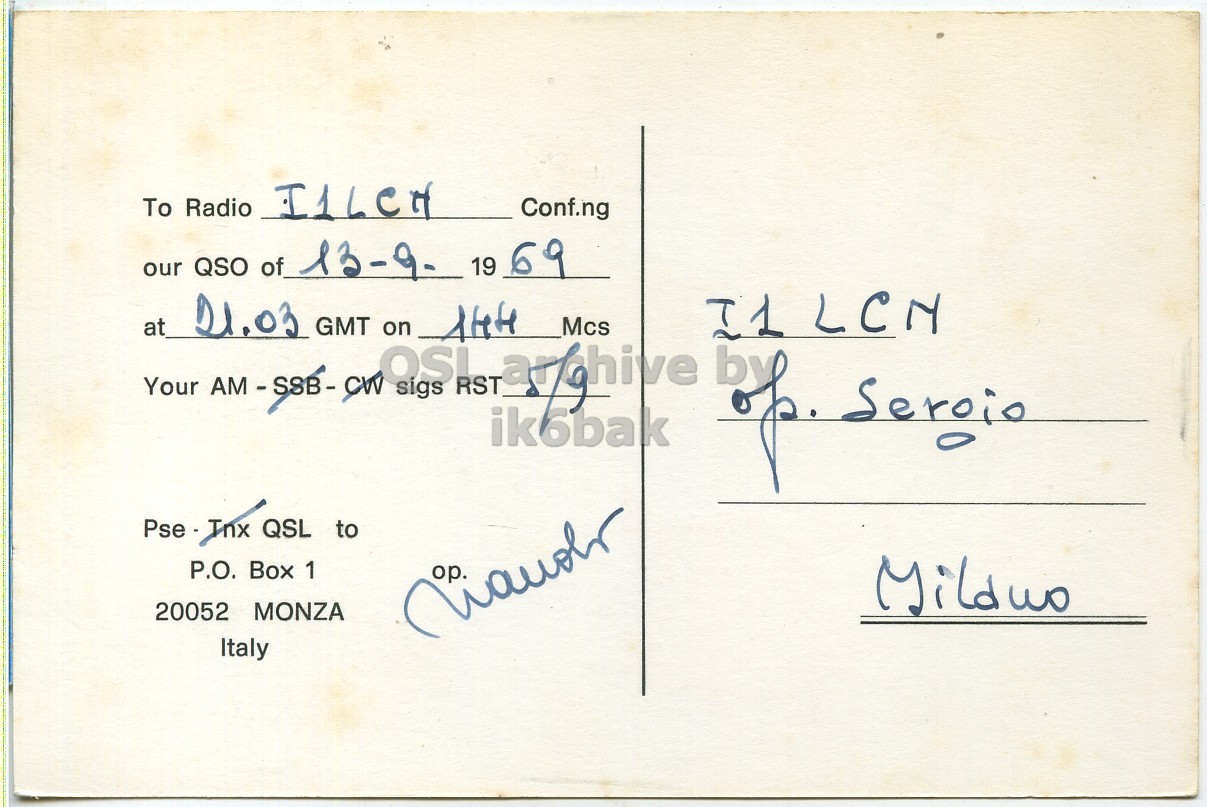 To Radio I1LCN Conf.ng
our QSO of 13-9- 1969
at 21.03 GMT on 144 Mcs
Your AM - SSB - CW sigs RST 5/9
Pse - Tnx QSL to
P.O. Box 1
20052 MONZA
Italy
op.
I1 LCN
op. Sergio
Milano
QSL archive by
ik6bak